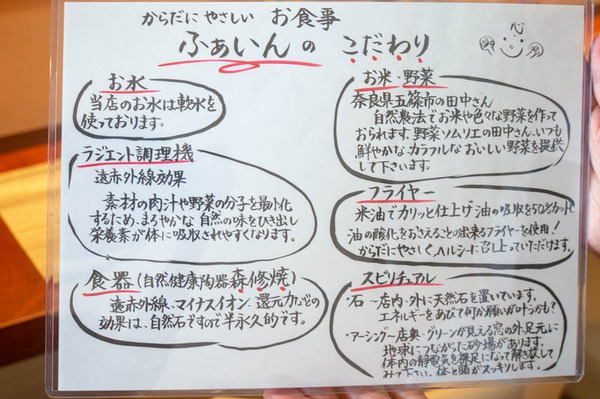 からだに やさしい お食事
ふぁいんの こだわり
心
お水
当店のお水は軟水を
使っております。
ラジエント調理機
遠赤外線効果
素材の肉汁や野菜の分子を最小化
するため、まろやかな 自然の味をひき出し
栄養素が体に吸収されやすくなります。
食器 (自然健康陶器森修焼)
遠赤外線・マイナスイオン 還元力などの
効果は、自然石ですので半永久的です。
お米・野菜
奈良県五條市の田中さん
自然農法でお米や色々な野菜を作って
おられます。野菜ソムリエの田中さん、いつも
鮮やかなカラフルなおいしい野菜を提供
して下さいます。
フライヤー
米油でカリッと仕上げ 油の吸収を50%カット
油の酸化をおさえることの出来るフライヤーを使用!
からだにやさしく、ヘルシーに召し上っていただけます。
スピリチュアル
・石 〜店内・外に天然石を置いています。
エネルギーをあびて何か願いが叶うかも?
・アーシング〜店奥・グリーンが見える窓の外、足元に
地球につながった砂場があります。
体内の静電気を裸足になって解き放して
みて下さい。体と頭がスッキリします。